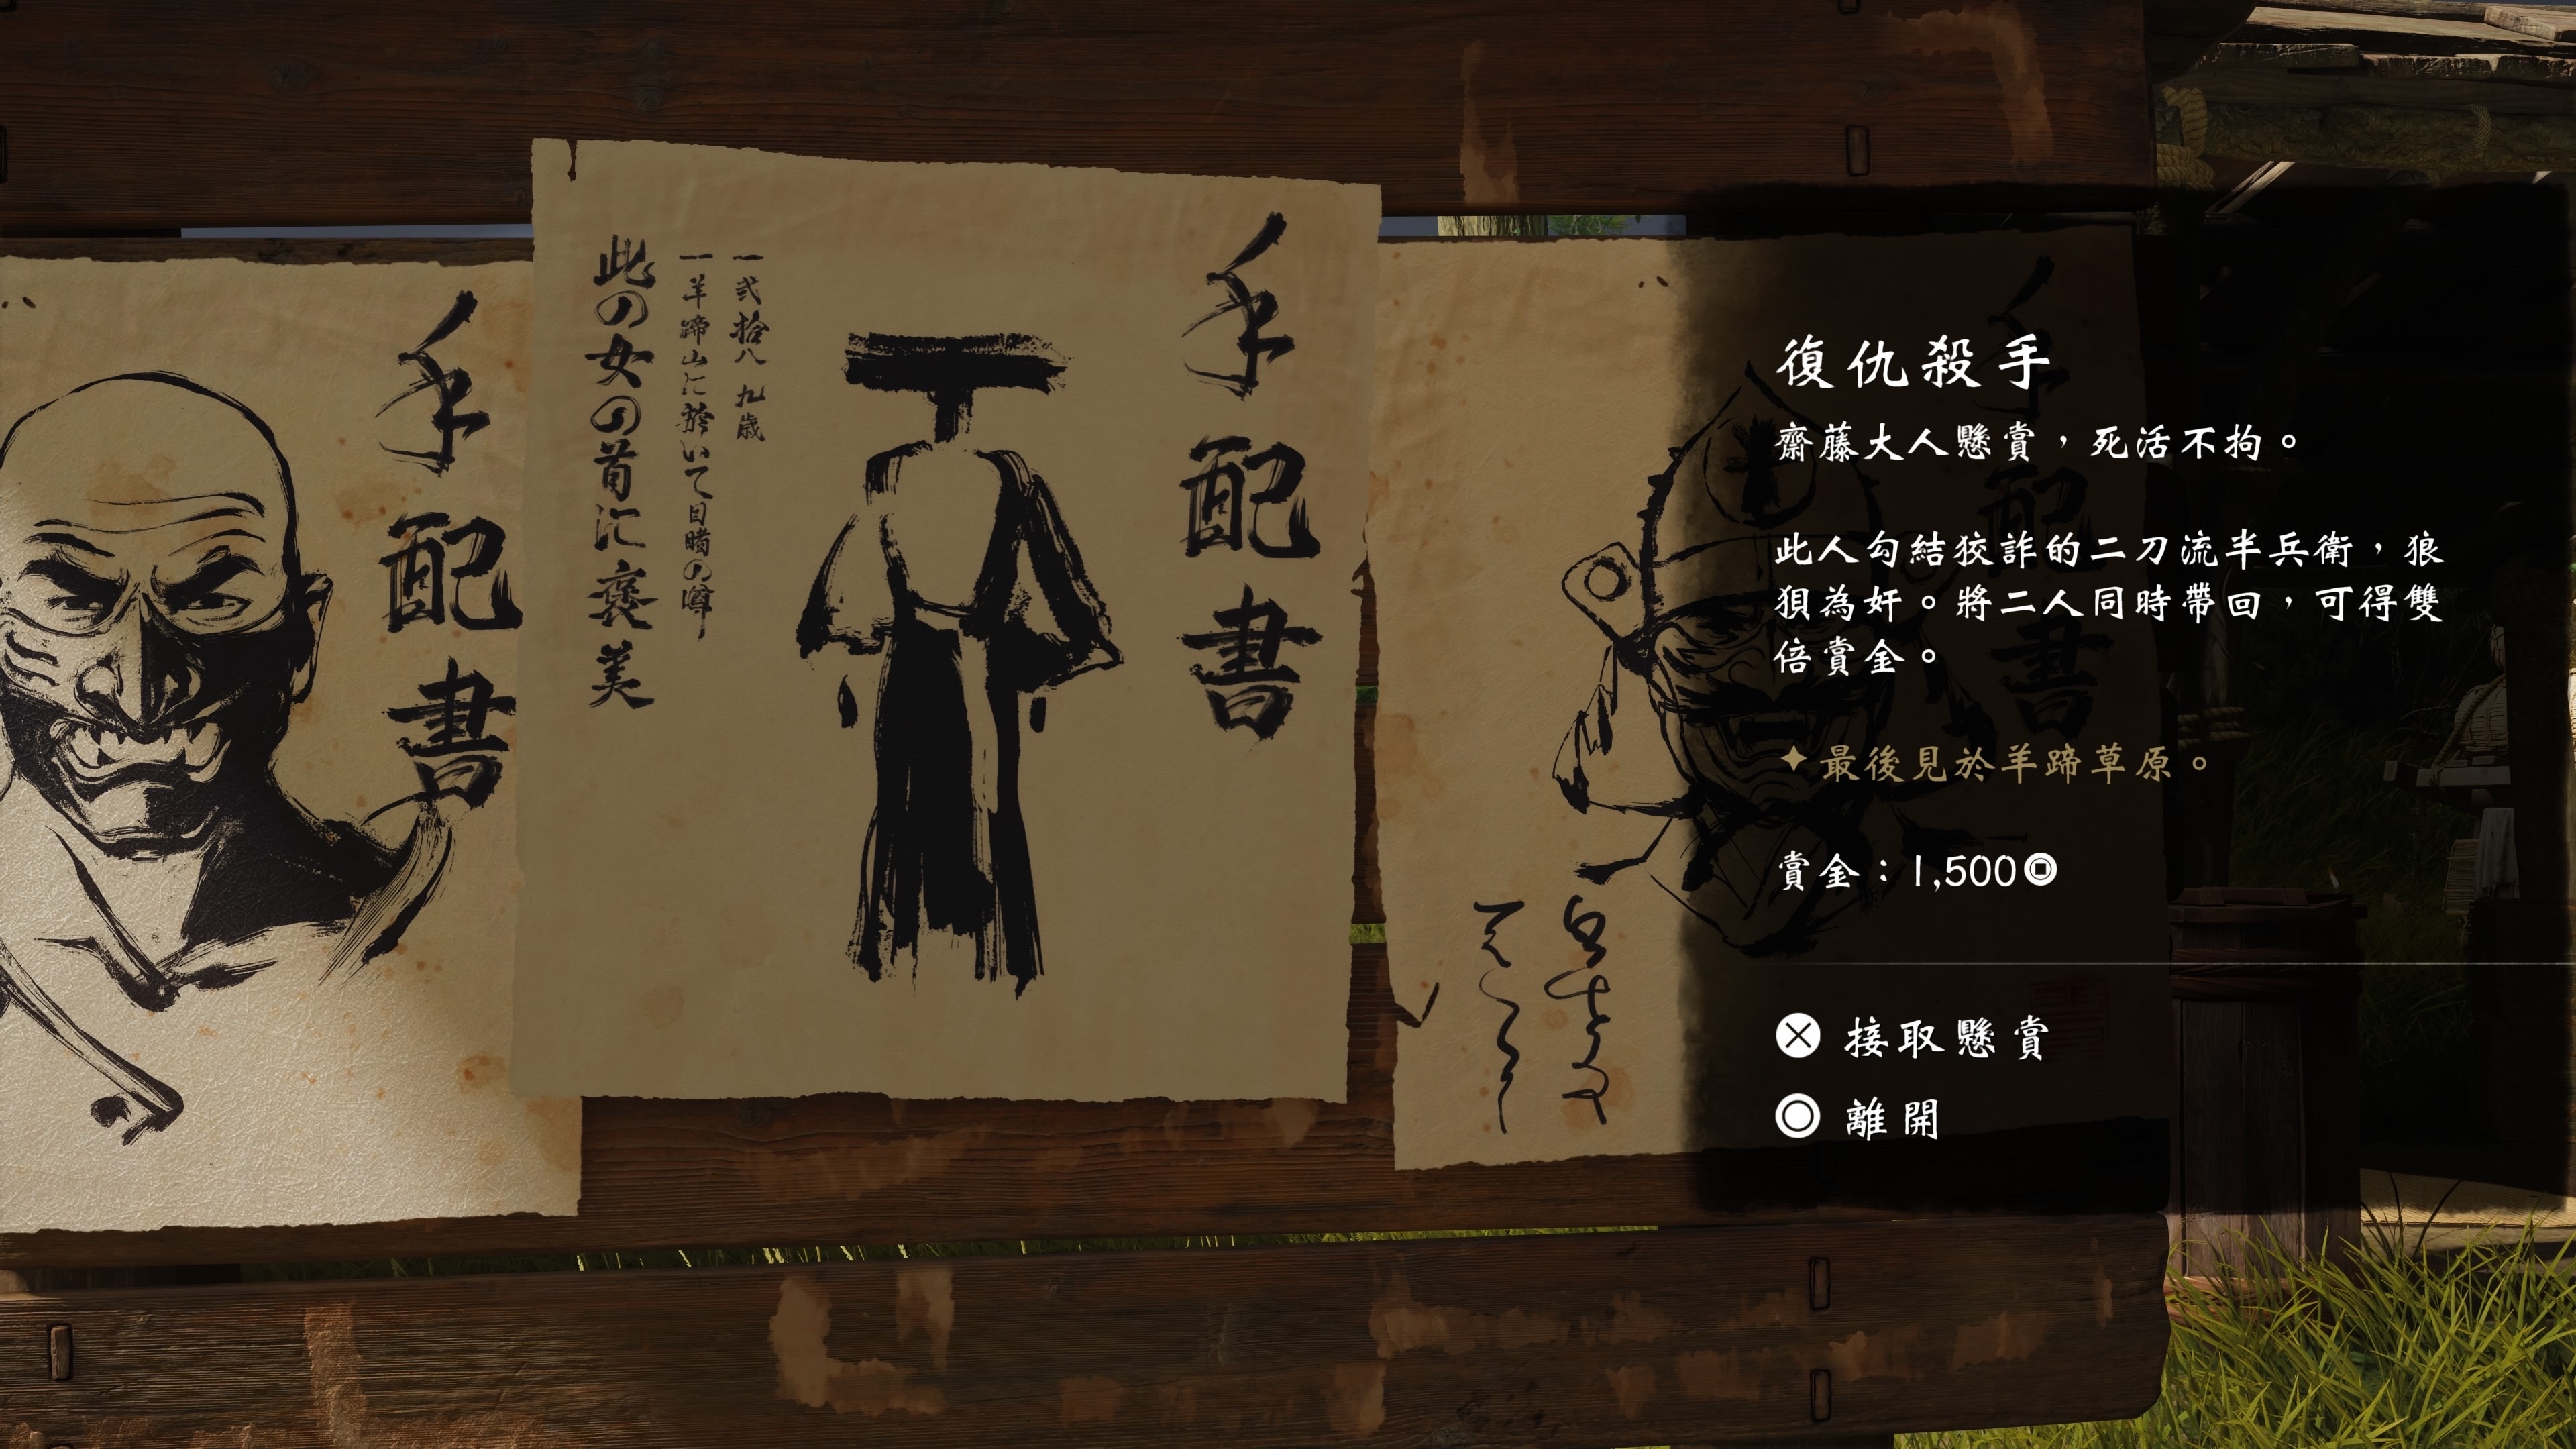 手配書
手配書
一弐拾八九歳
一羊蹄山に於いて目睹の噂
此の女の首に褒美
手配書
復仇殺手
齋藤大人懸賞，死活不拘。
此人勾結狡詐的二刀流半兵衛，狼
狽為奸。將二人同時帶回，可得雙
倍賞金。
最後見於羊蹄草原。
賞金：1,500
接取懸賞
離開